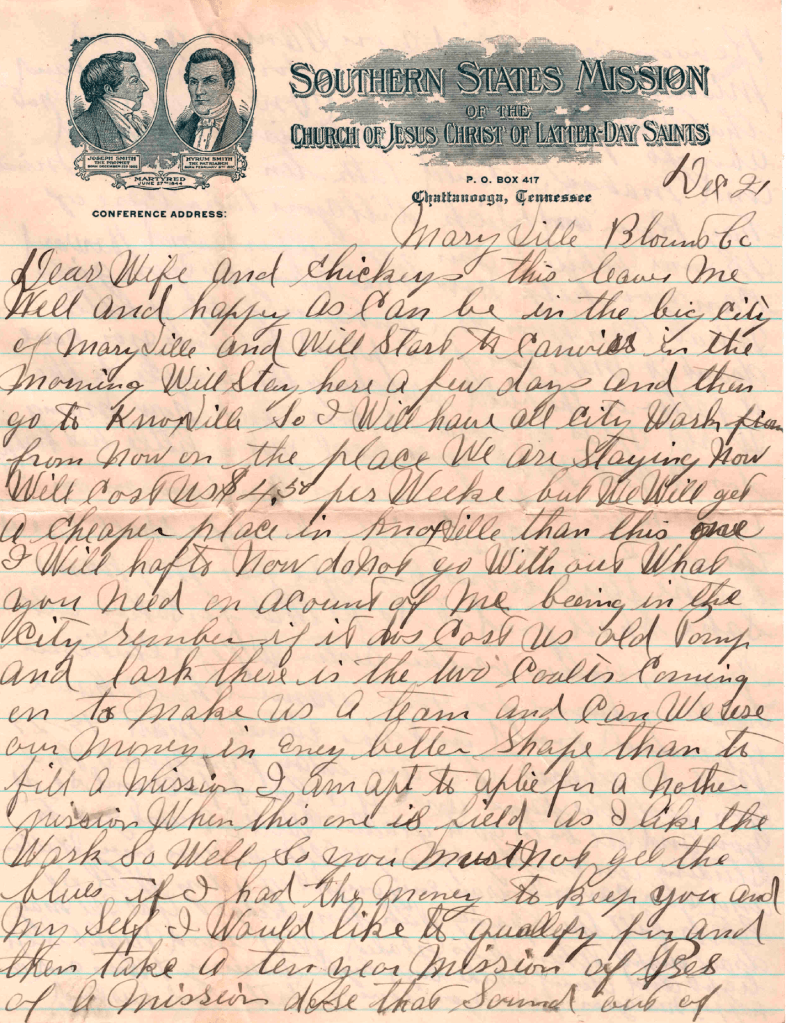 SOUTHERN STATES MISSION
OF THE
CHURCH OF JESUS CHRIST OF LATTER-DAY SAINTS
JOSEPH SMITH
THE PROPHET
BORN DECEMBER 23D 1805
HYRUM SMITH
THE PATRIARCH
MARTYRED
JUNE 27TH 1844
P. O. BOX 417
Chattanooga, Tennessee
CONFERENCE ADDRESS:
21
Mary Ville Blount Co
Dear Wife and chickeys this leaves me
Well and happy as Can be in the big City
of Mary Ville and Will Start to Canvis in the
morning Will Stay here a few days and then
go to KnoxVille So I Will have all City Work
from now on the place We are Staying Now
Will Cost us $4.50 per Weeke but We Will get
a cheaper place in KnoxVille than this one
I Will hafto Now do Not go With out What
you Need on acount of Me beeing in the
City if it dos Cost us old Pomp
and Lark there is the two Coalts Coming
on to Make us a team and Can We use
our Money in eney better Shape than to
fill a Mission I am apt to aplie for a Nother
mission When this one is field as I like the
Work So Well So you must Not get the
blues if I had the Money to Keep you and
My Self I Would like to quallefy for and
then take a ten year Mission of Pres
of a Mission dose that Sound out of